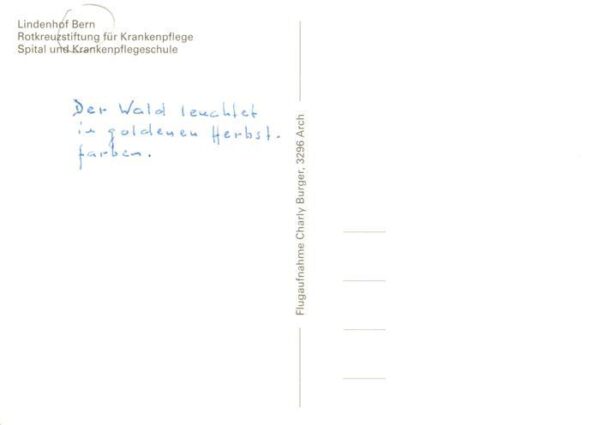 Lindenhof Bern
Rotkreuzstiftung für Krankenpflege
Spital und Krankenpflegeschule
Der Wald leuchtet
in goldenen Herbst-
farben.
Flugaufnahme Charly Burger, 3296 Arch